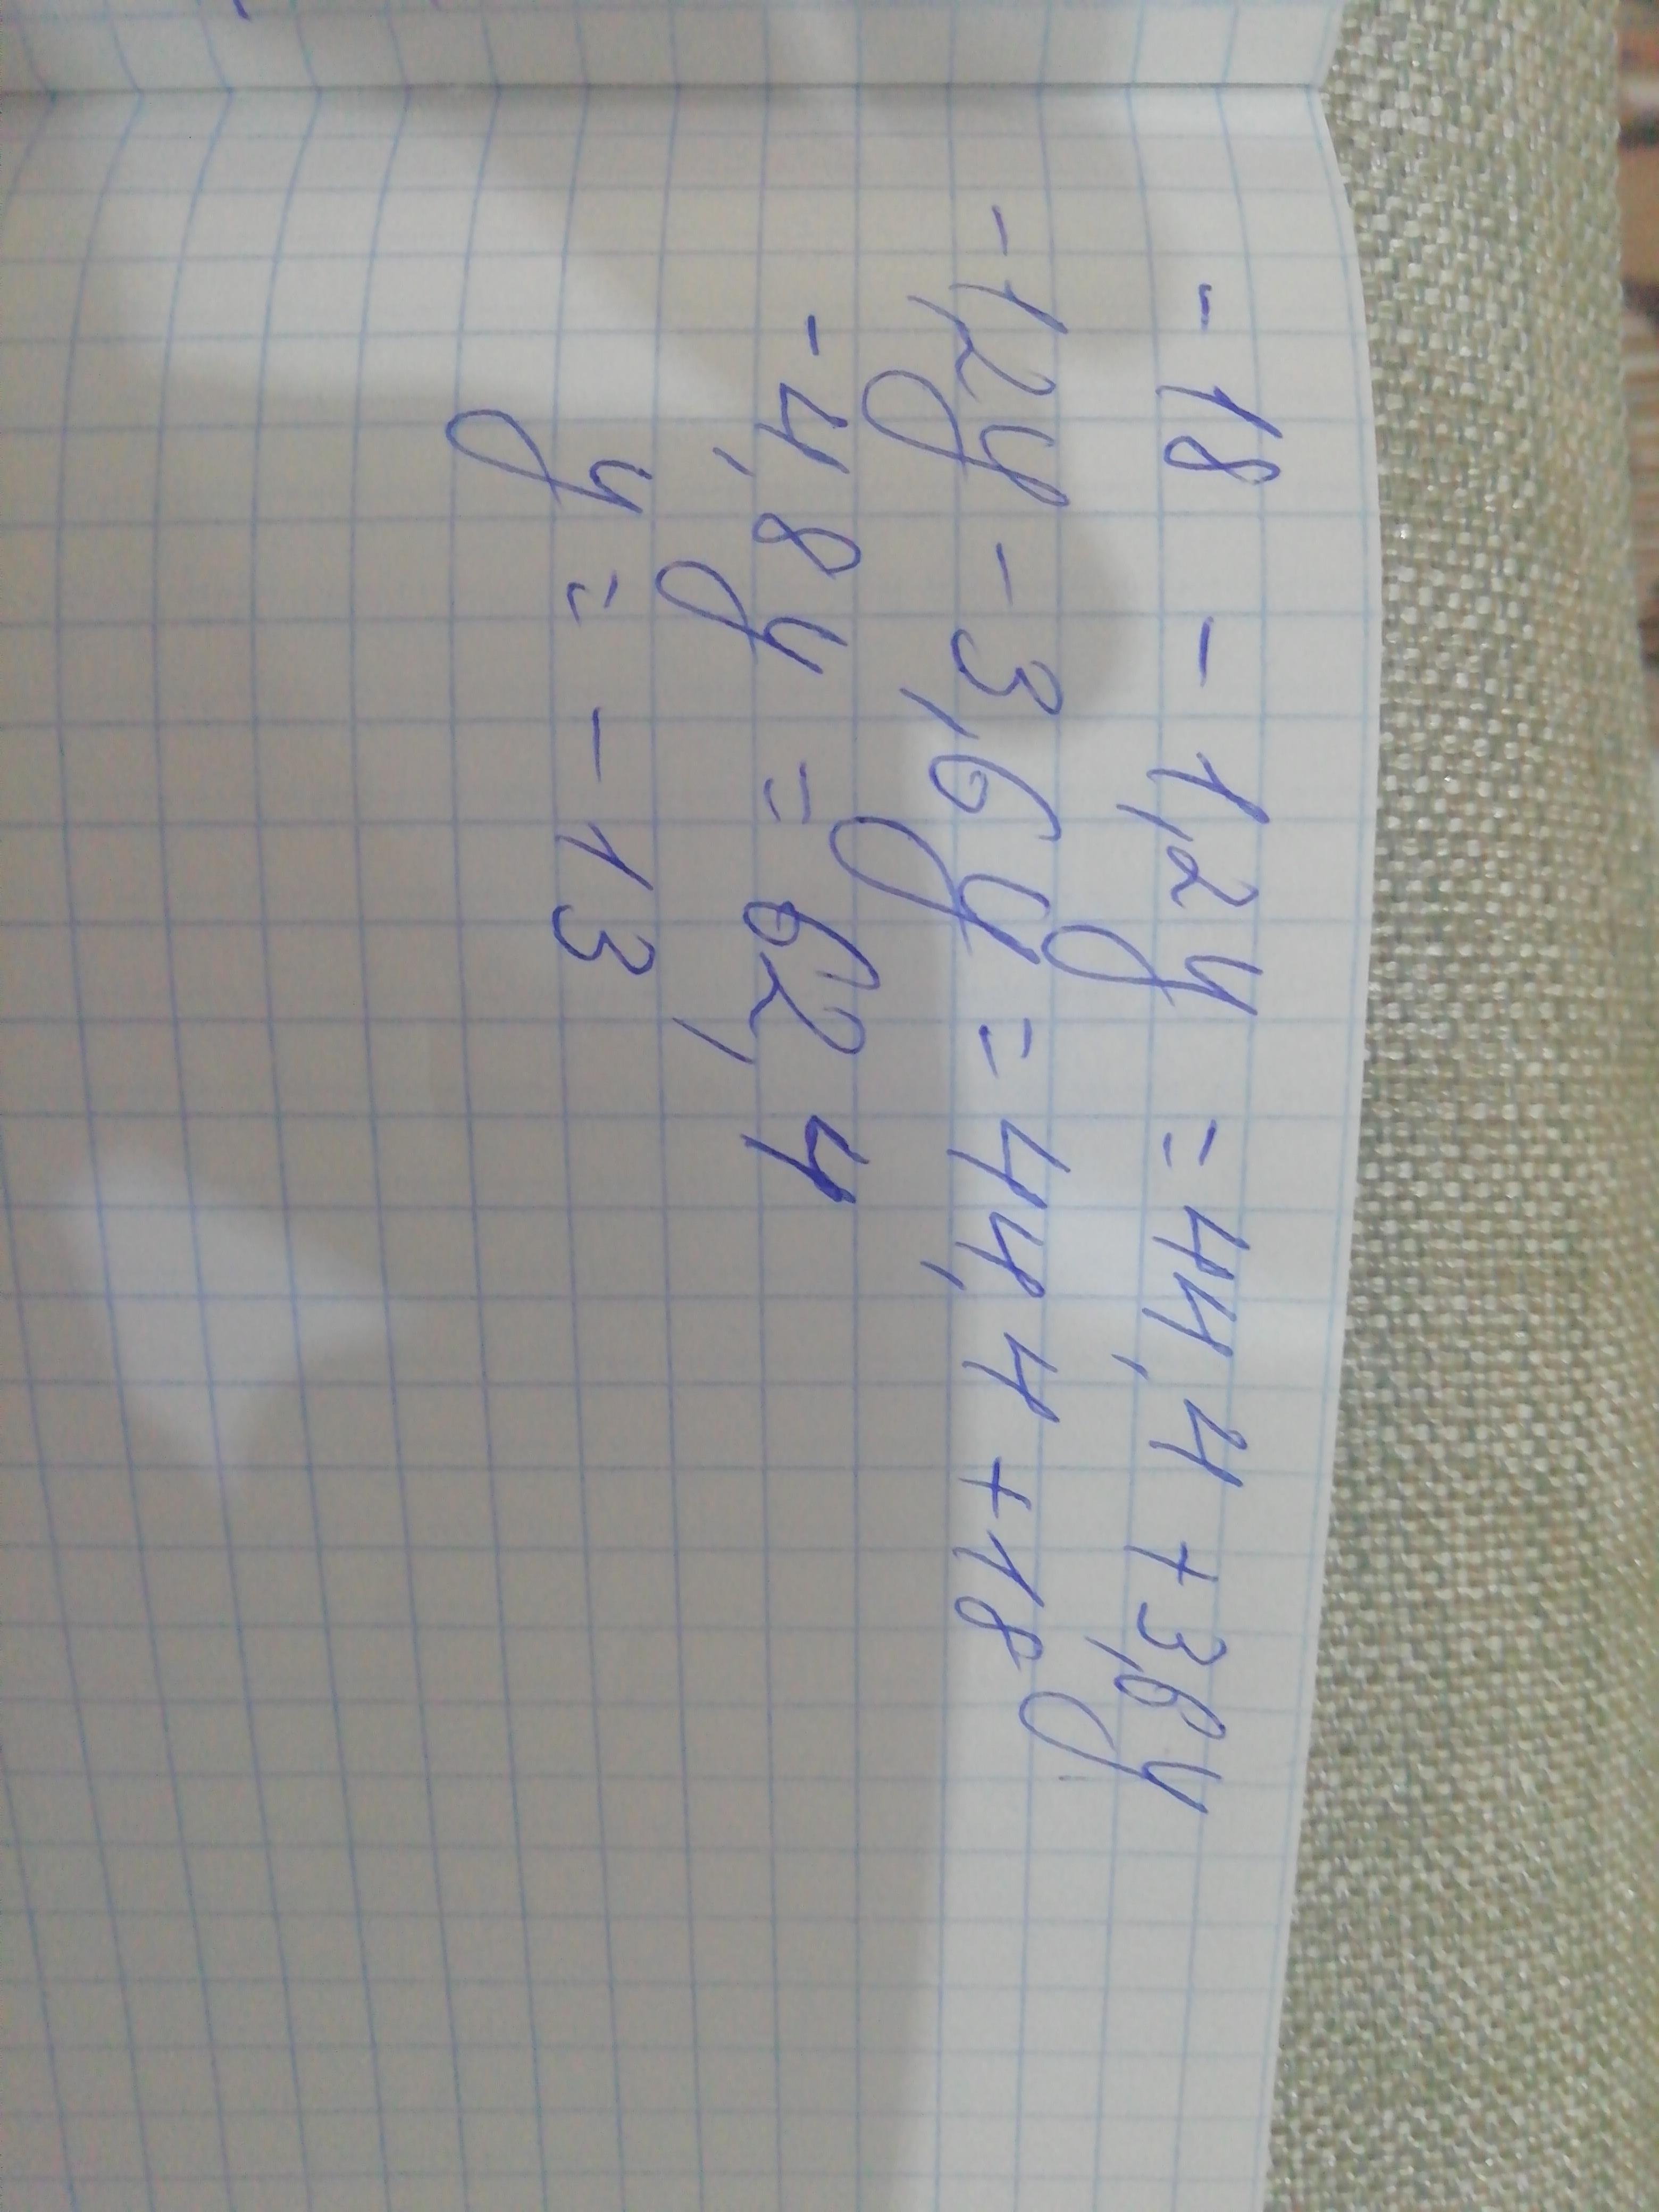 - 18 - 1,2y = 44,4 + 3,6y
- 1,2y - 3,6y = 44,4 + 18
- 4,8y = 62,4
y = - 13